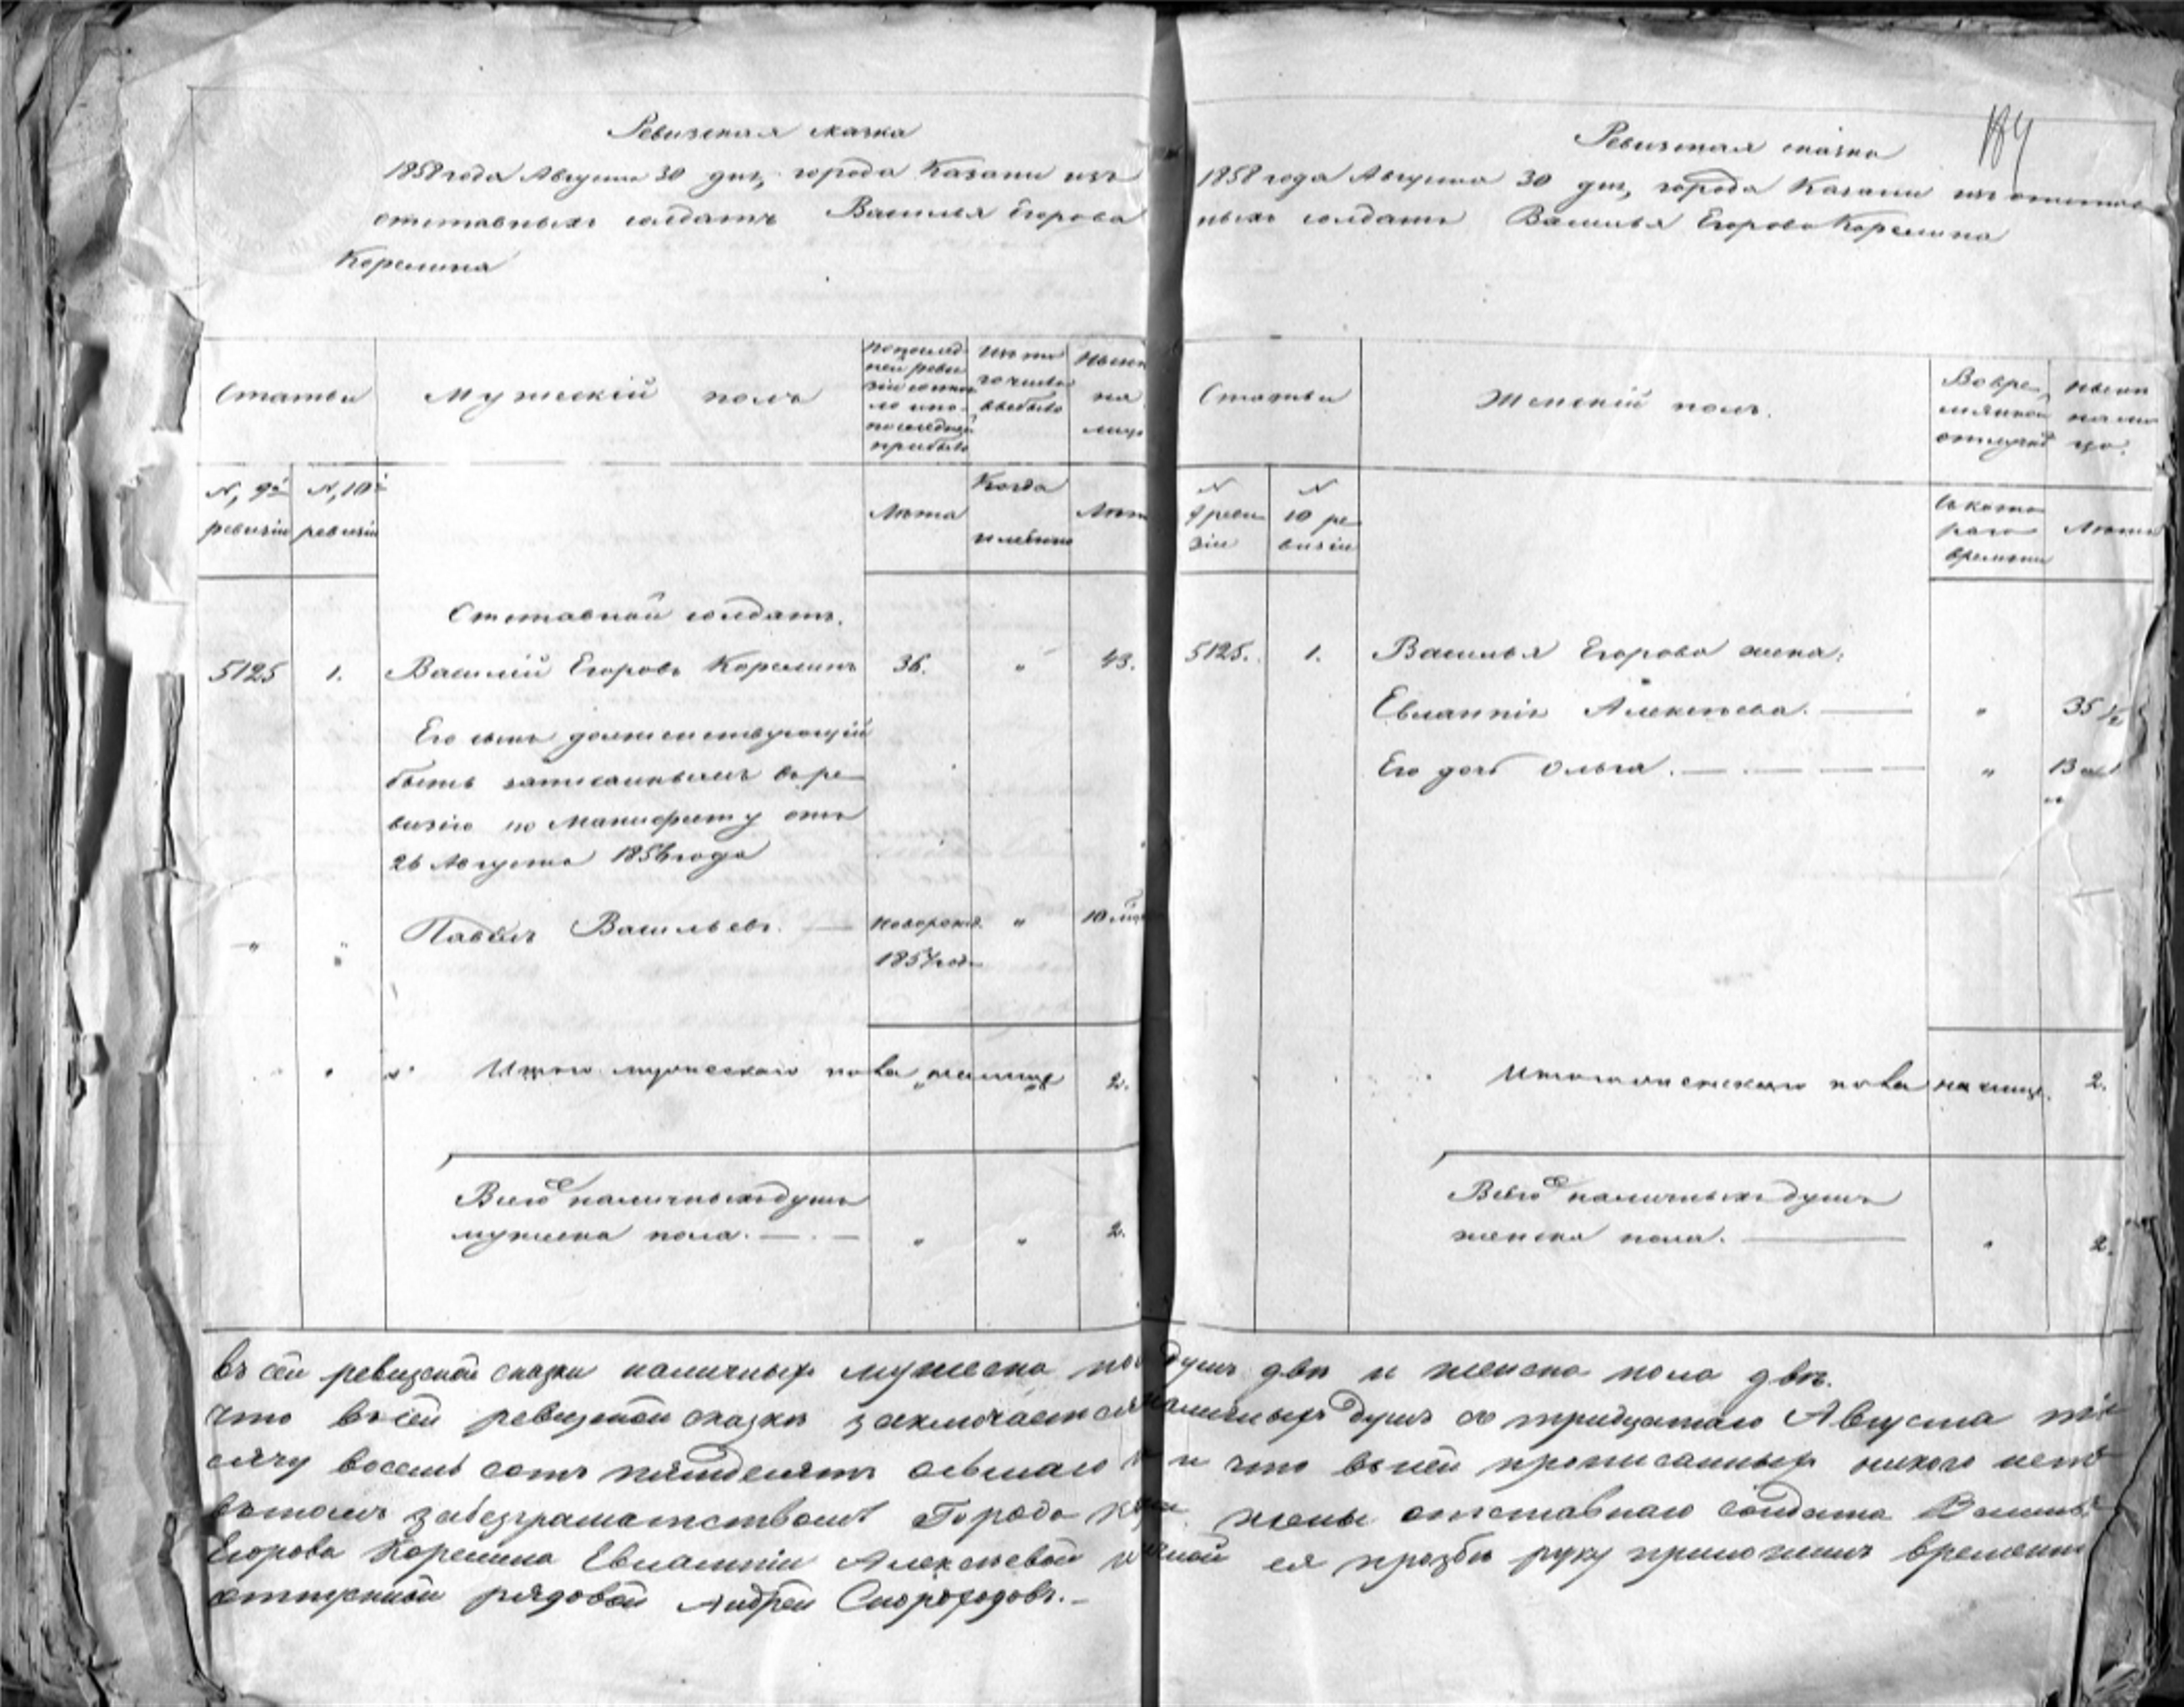 Ревизская сказка
1858 года Августа 30 дня, города Казани изъ
отставныхъ солдатъ Василья Егорова
Корелина
Статьи
Мужескій полъ
По послед
ней реви
зіи состоя
ло и по
последней
прибыло
Изъ то
го числа
выбыло
Ныне
на
лицо
N, 9й
ревизіи
N, 10й
ревизіи
Лѣта
Когда
именно
Лѣта
Отставной солдатъ.
5125 1. Василій Егоровъ Корелинъ 36. " 43.
Его сынъ долженствующій
быть записаннымъ въ ре
визію по Манифесту отъ
26 Августа 1856 года
" " Павелъ Васильевъ. — новорожд. " 10 мѣс
1857 год
Итого мужескаго пола на лицо 2.
Всего наличныхъ душъ
мужеска пола. — . — " " 2.
184
Ревизская сказка
1858 года Августа 30 дня, города Казани изъ отстав
ныхъ солдатъ Василья Егорова Корелина
Статьи
Женскій полъ.
Во вре
мянной
отлучке
Ныне
на ли
цо.
N
9 реви
зіи
N
10 ре
визіи
Съ кото
раго
времени
Лѣта
5125. 1. Василья Егорова жена:
Евлампія Алексѣева. — " 35 1/2
Его дочь Ольга. — . — — — " 13
Итого женскаго пола на лицо. 2.
Всего наличныхъ душъ
женска пола. — " 2.
Въ сей ревизской сказки наличныхъ мужеска пола душъ двѣ и женска пола двѣ.
что въ сей ревизской сказкѣ заключается наличныхъ душъ съ тридцатаго Августа ты
сячу восемь сотъ пятьдесятъ осьмаго и что въ ней прописанныхъ никого нетъ
въ томъ за безграмотствомъ Города жены отставнаго солдата Василья
Егорова Корелина Евлампіи Алексѣевой личной ея прозбѣ руку приложилъ временно
отпускной рядовой Андрей Скороходовъ. –